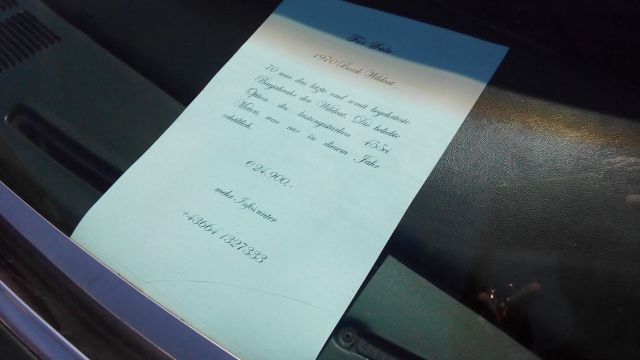 For Sale
1970 Buick Wildcat
70 war das letzte und somit begehrteste
Baujahr des Wildcat. Die beliebte
Option des leistungsstarken 455ci
Motors war nur in diesem Jahr
erhältlich
€ 24.900,-
mehr Infos unter
+43664 1327333